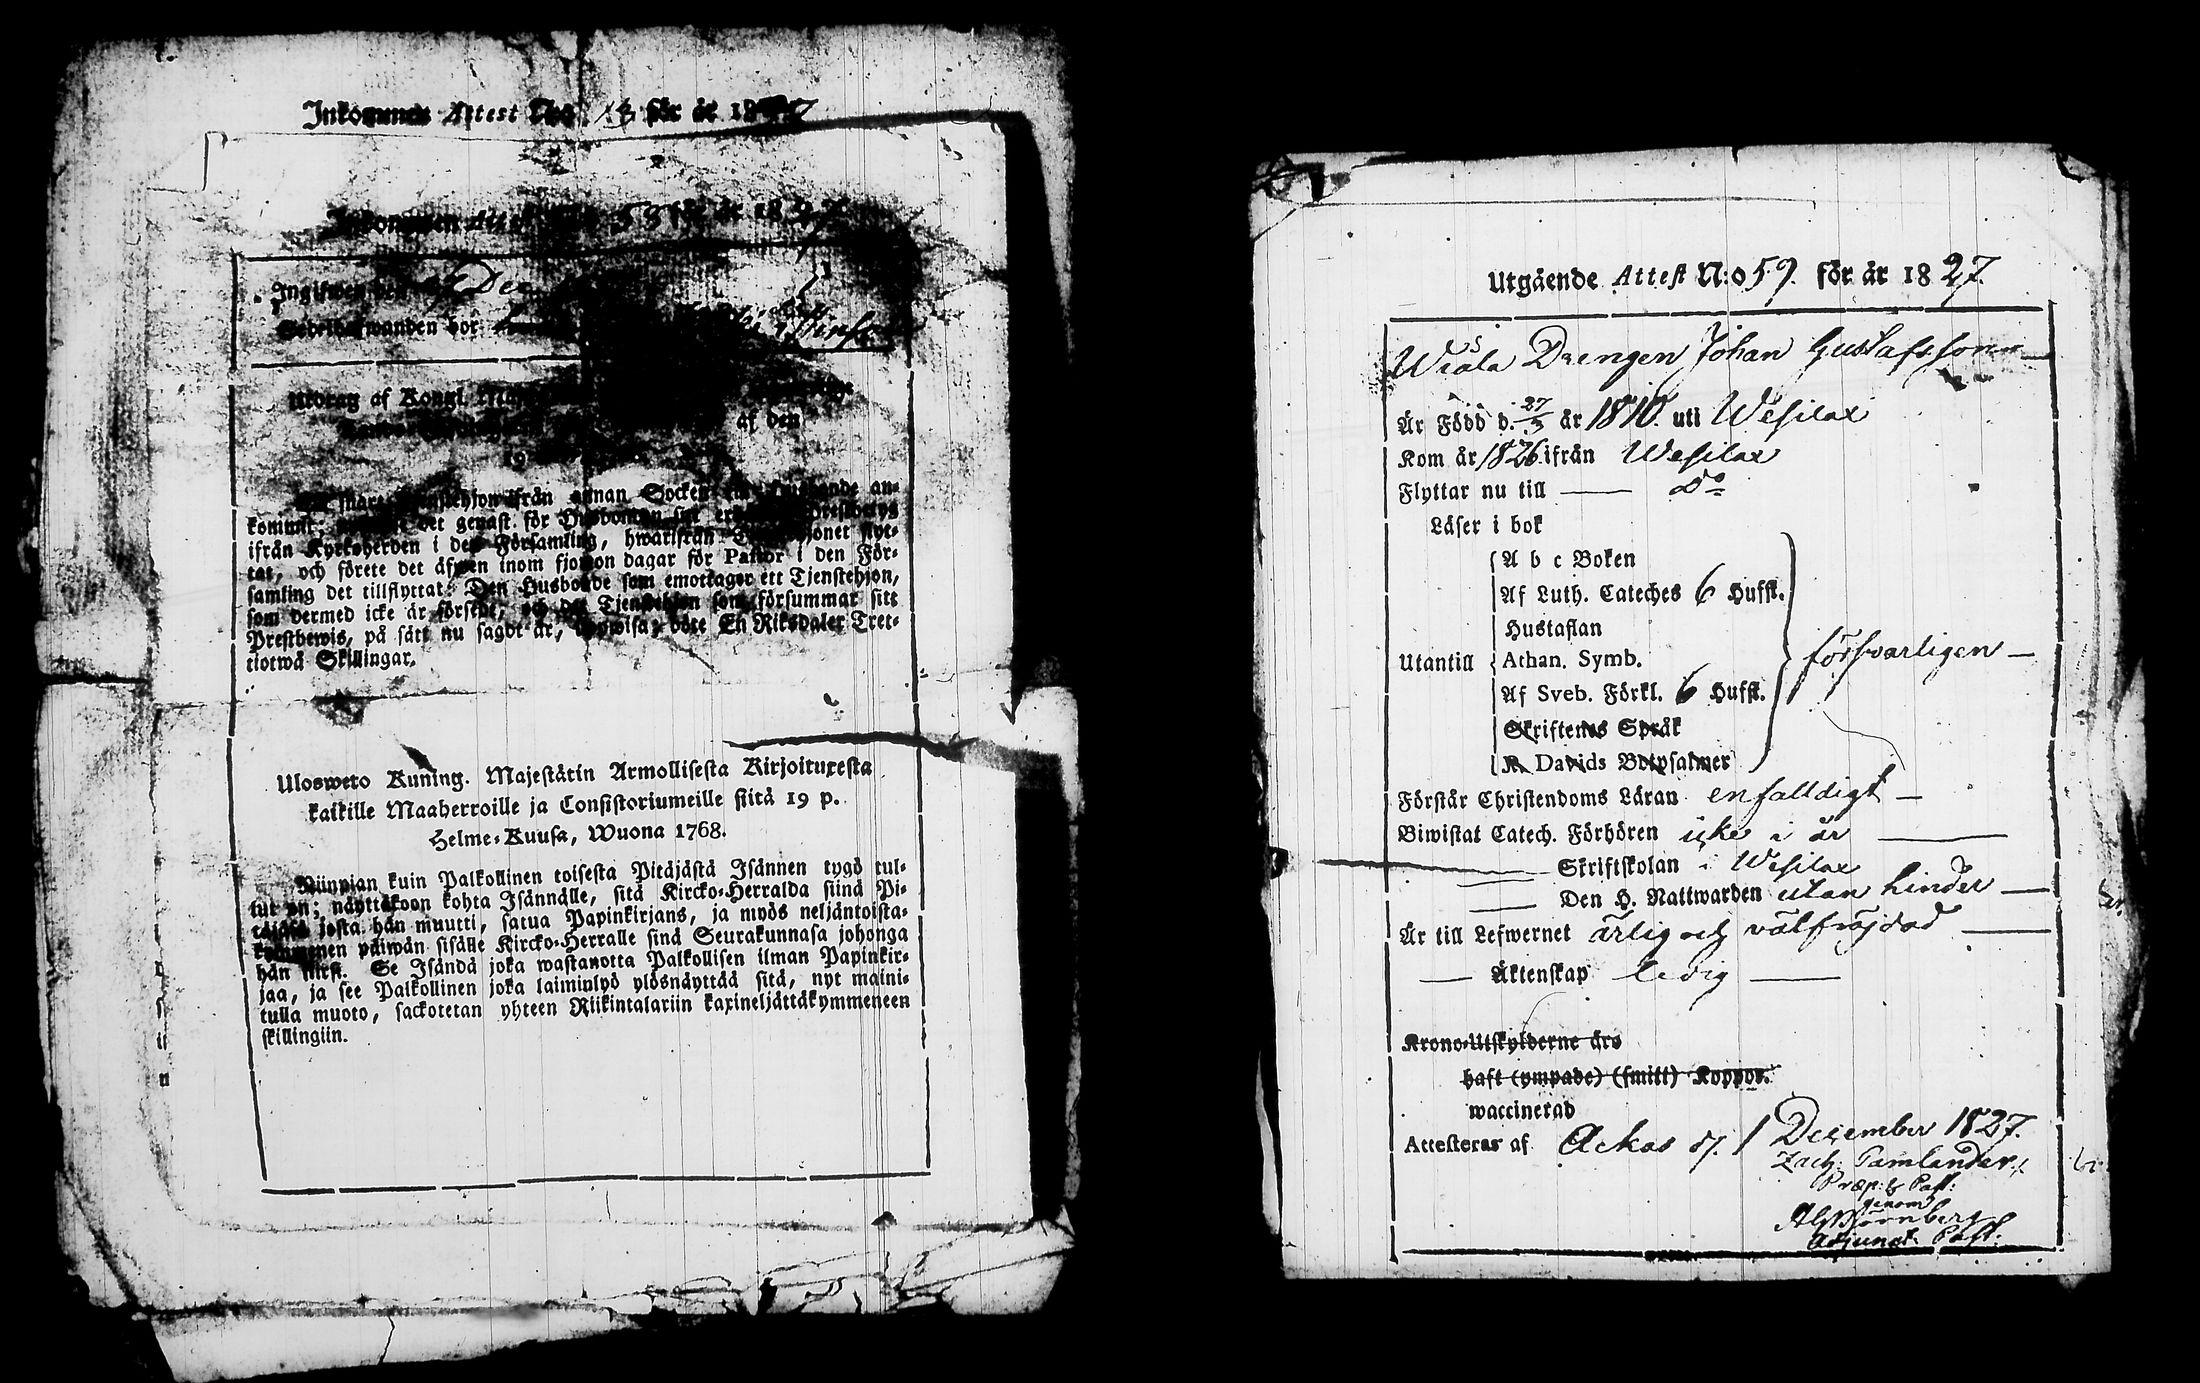 Inkommen Attest No 13 för år 1827
Inkommen Attest 53 för år 1827
Ingifwen den Dec
Sedelhafwanden bor
Utdrag af Kongl. Maj
af den
19
ifrån annan Socken an-
komm det genast för Husbonden
ifrån Kyrkoherden i den Församling, hwarifrån flyt-
tat, och förete det äfwen inom fjorton dagar för Pastor i den För-
samling det tillflyttat: Den Husbonde som emottager ett Tjenstehjon,
som dermed icke är försedt, och det Tjenstehjon som försummar sitt
Prestbewis, på sätt nu sagdt är, uppwisa, böte En Riksdaler Tret-
tiotwå Skillingar.
Ulosweto Kuning. Majestätin Armollisesta Kirjoituxesta
kaikille Maaherroille ja Consistoriumeille siitä 19 p.
Helme-Kuusa, Wuona 1768.
Niinpian kuin Palkollinen toisesta Pitäjästä Isännen tygö tul-
lut on; näyttäkoon kohta Isännälle, sitä Kircko-Herralda siinä Pi-
täjäsä josta hän muutti, satua Papinkirjans, ja myös neljäntoista-
kymmenen päiwän sisälle Kircko-Herralle sinä Seurakunnasa johonga
hän siirsi. Se Isändä joka wastanotta Palkollisen ilman Papinkir-
jaa, ja see Palkollinen joka laiminlyö ylösnäyttää sitä, nyt maini-
tulla muoto, sackotetan yhteen Riikintalariin kaxineljättäkymmeneen
skillingiin.
Utgående Attest N:o 59. för år 1827.
Wiala Drengen Johan Gustafsson
Är Född d. 27/3 år 1810. uti Wesilax
Kom år 1826 ifrån Wesilax
Flyttar nu till — Do
Läser i bok
A b c Boken
Af Luth. Cateches 6 Hufst.
Hustaflan
Utantill Athan. Symb. försvarligen —
Af Sveb. Förkl. 6 Hufst.
Skriftenes Språk
K. Davids Botpsalmer
Förstår Christendoms Läran enfalldigt —
Biwistat Catech. Förhören icke i år —
— Skriftskolan i Wesilax
— Den H. Nattwarden utan hinder —
Är till Lefwernet ärlig och välfräjdad —
— Äktenskap ledig —
Krono-Utskylderne års
haft (ympade) (smitt) Koppor.
waccinerad
Attesteras af Ackas d. 1 December 1827.
Zach: Pamlander
Præp: & Past:
genom
Björnberg
Adjunct. Past: